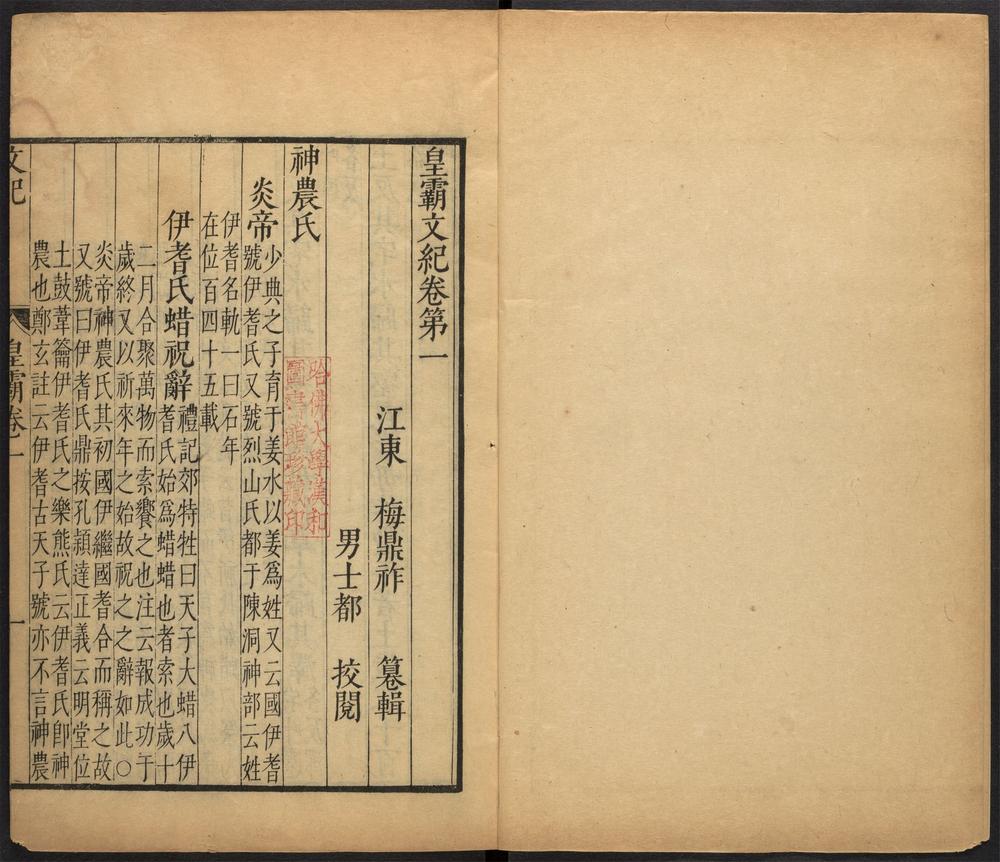 皇霸文紀卷第一
江東 梅鼎祚 篹輯
男士都 挍閱
神農氏
炎帝
少典之子育于姜水以姜爲姓又云國伊耆
號伊耆氏又號烈山氏都于陳洞神部云姓
伊耆名軌一曰石年
在位百四十五載
伊耆氏蜡祝辭
禮記郊特牲曰天子大蜡八伊
耆氏始爲蜡蜡也者索也歲十
二月合聚萬物而索饗之也注云報成功于
歲終又以祈來年之始故祝之之辭如此○
炎帝神農氏其初國伊繼國耆合而稱之故
又號曰伊耆氏鼎按孔穎達正義云明堂位
土鼓葦籥伊耆氏之樂熊氏云伊耆氏卽神
農也鄭玄註云伊耆古天子號亦不言神農
文紀 皇霸卷一 一
哈佛大學漢和
圖書館珍藏印